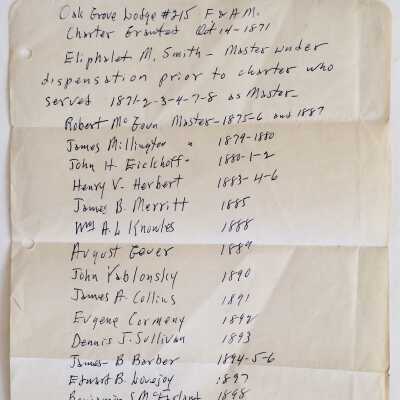 Oak Grove Lodge #215 F & A M.
Charter Granted Oct 14-1871
Eliphalet M. Smith - Master under
dispensation prior to charter who
served 1871-2-3-4-7-8 as Master-
Robert McGoun Master-1875-6 and 1887
James Millington " 1879-1880
John H Eickhoff - 1880-1-2
Henry V. Herbert 1883-4-6
James B. Merritt 1885
Wm A. L Knowles 1888
August Gever 1889
John Yablonsky 1890
James A Collins 1891
Eugene Cormeny 1892
Dennis J. Sullivan 1893
James B Barber 1894-5-6
Edward B. Lovejoy 1897
Benjamin S McFarland 1898